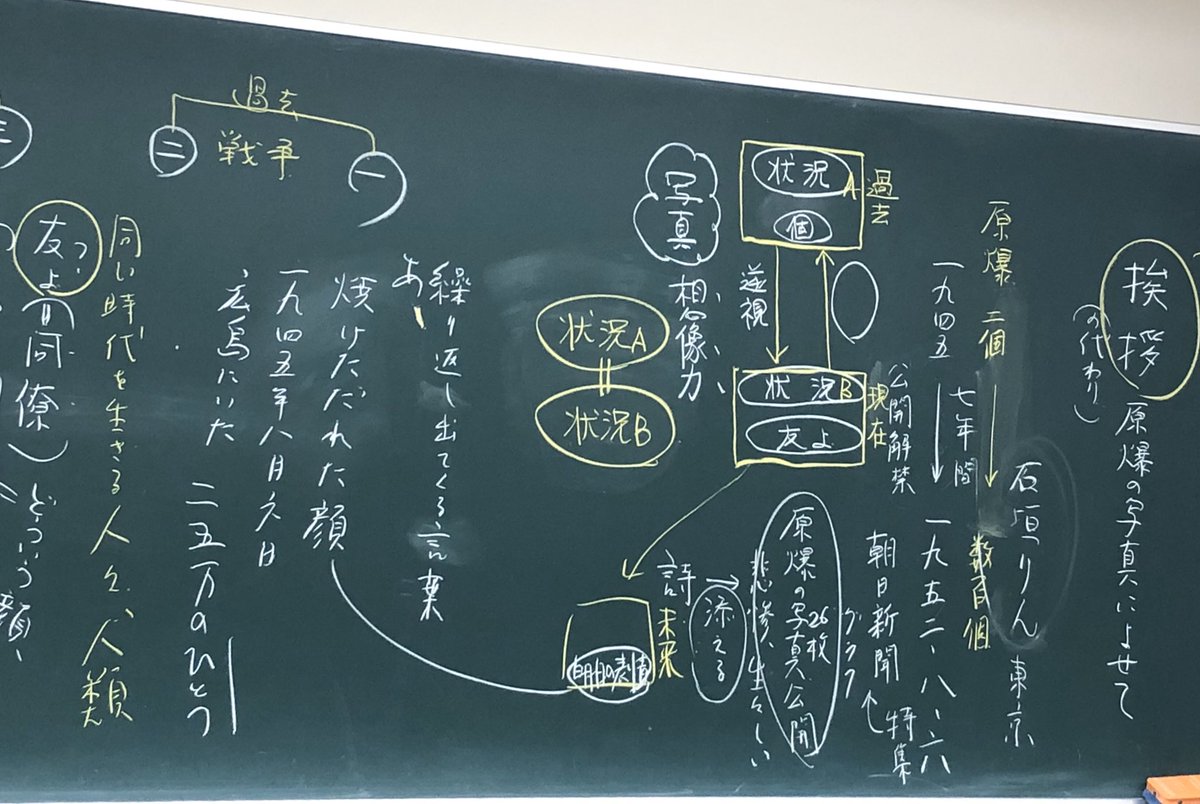 挨拶 原爆の写真によせて
(の代わり)
石垣りん 東京
原爆 二個 → 数百個
一九四五 七年間 → 一九五二・八・六
公開解禁 朝日新聞 ← 特集
グラフ
過去
状況A
個
逆視
現在
状況B
友よ
原爆の写真26枚公開
悲惨、生々しい
詩 → 添える
未来
明日の表情
写真
想像力、
状況A
状況B
繰り返し出てくる言葉
あ、
焼けただれた顔
一九四五年八月六日
広島にいた 二五万のひとつ
過去
戦争
一
二
同じ時代を生きる人々、人類
友よ(同僚)どういう顔、
三